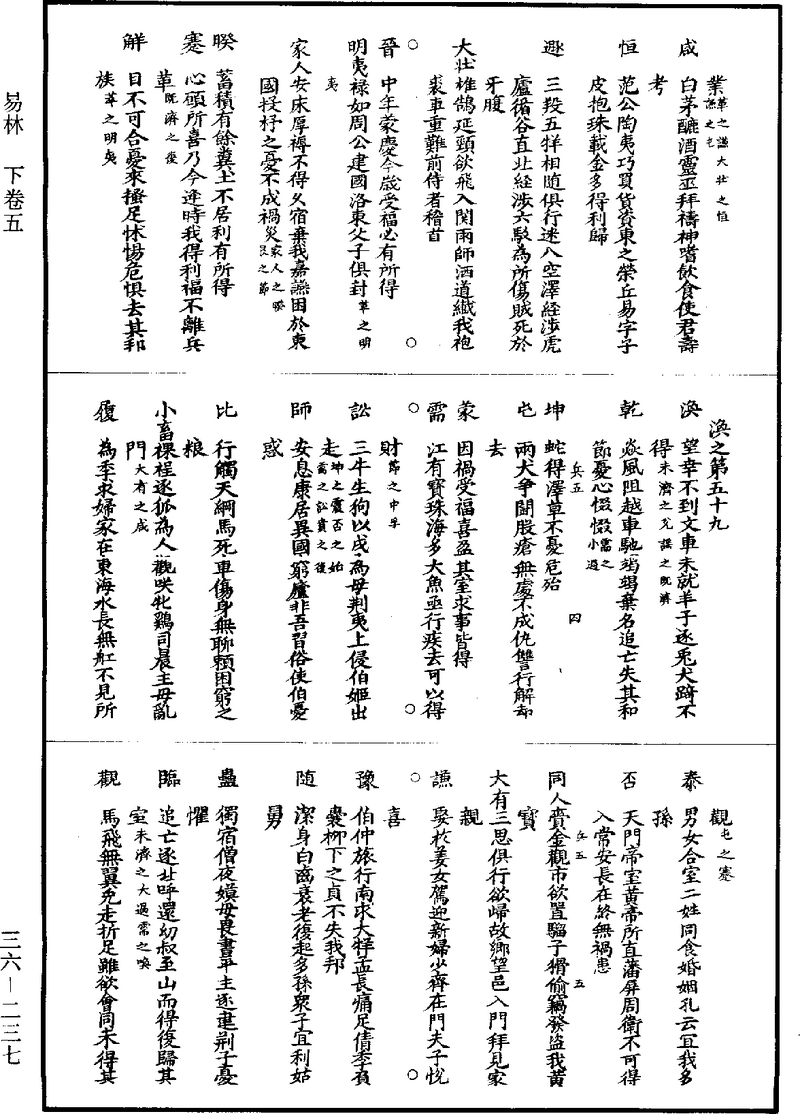 易林　下卷五
三六—二三七
業革之謙大壯之恒謙之乇
咸　白茅醴酒靈巫拜禱神嗜飲食使君壽
考
恒　范公陶夷巧買貨資東之榮丘易字子
皮抱珠載金多得利歸
遯　三叚五牂相随俱行迷入空澤經涉虎
廬循谷直北經涉六駁為所傷賊死於
牙腹
大壯　椎鵠延頸欲飛入関雨師洒道纎我袍
裘車重難前侍者稽首
○
晉　中年蒙慶今歲受福必有所得
○
明夷　禄如周公建國洛東父子俱封革之明
夷
家人　安床厚褥不得久宿棄我嘉讌困於東
國投杼之憂不成禍災家人之暌艮之節
暌　蓄積有餘糞土不居利有所得
蹇　心願所喜乃今逢時我得利福不離兵
革既濟之復
解　目不可合憂來搔足怵惕危惧去其邦
族革之明夷
渙之第五十九
渙　望幸不到文車未就羊子逐兎犬踦不
得未濟之尤謙之既濟
乾　焱風阻越車馳揭揭棄名追亡失其和
節憂心惙惙需之小過
兵五
四
坤　蛇得澤草不憂危殆
屯　兩犬爭鬪股瘡無處不成仇讐行解却
去
蒙　因禍受福喜盈其室求事皆得
需　江有寶珠海多大魚亟行疾去可以得
○
財節之中孚
○
訟　三牛生狗以戌為母荆夷上侵伯姬出
走坤之震否之始需之訟賁之復
師　安息康居異國穹廬非吾習俗使伯憂
惑
比　行觸天綱馬死車傷身無聊頼困窮之
粮
小畜　裸裎逐狐為人觀咲牝鷄司晨主母亂
門大有之咸
履　為季求婦家在東海水長無舡不見所
觀屯之蹇
泰　男女合室二姓同食婚姻孔云冝我多
孫
否　天門帝室黄帝所直藩屏周衛不可得
入常安長在終無禍患
兵五
五
同人　賫金觀市欲置騮子猾偷竊發盗我黄
寶
大有　三思俱行欲歸故鄉望邑入門拜見家
親
謙　娶於姜女駕迎新婦少齊在門夫子悅
○
喜
○
豫　伯仲旅行南求大牂孟長痛足倩季負
囊柳下之貞不失我邦
随　潔身白齒衰老復起多孫衆子宜利姑
舅
蠱　獨宿僧夜嫫母畏晝平主逐建荆子憂
懼
臨　追亡逐北呼還幼叔至山而得復歸其
室未濟之大過需之喚
觀　馬飛無翼兎走折足雖欲會同未得其